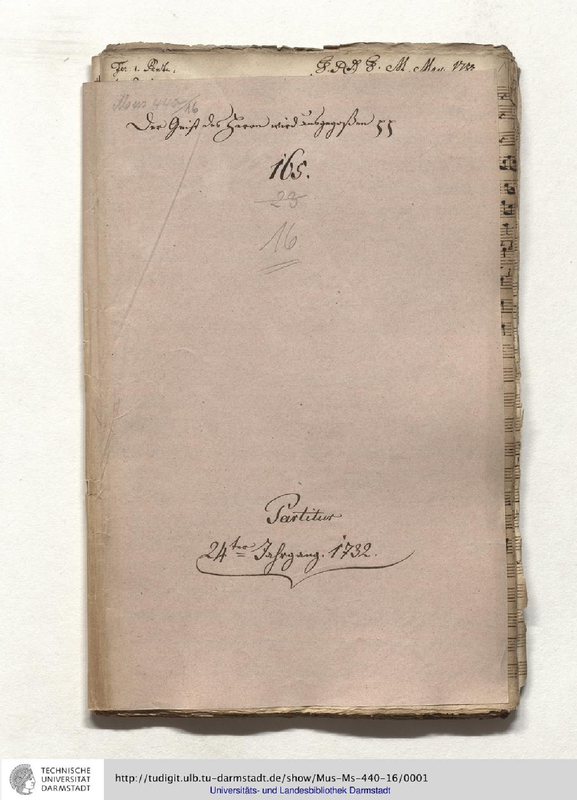 M. May. 1732
Mus 440/16
Der Geist des Herrn wird ausgegoßen
165.
23
16
Partitur
24ter Jahrgang. 1732.
TECHNISCHE
UNIVERSITÄT
DARMSTADT
http://tudigit.ulb.tu-darmstadt.de/show/Mus-Ms-440-16/0001
Universitäts- und Landesbibliothek Darmstadt